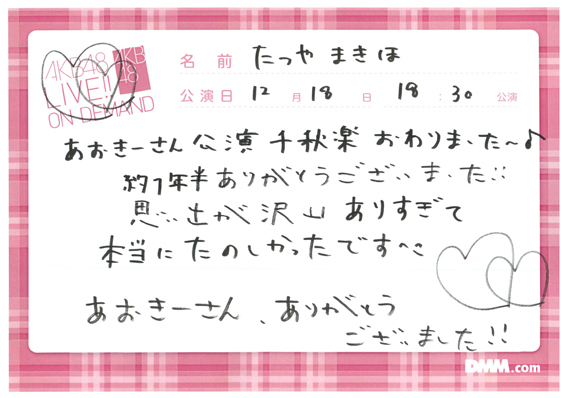 AKB48
LIVE!!
ON DEMAND
AKB
48
名前 たつや まきほ
公演日 12 月 18 日 18 : 30 公演
あおきーさん公演 千秋楽 おわりました〜♪
約1年半ありがとうございました!!
思い出が沢山ありすぎて
本当にたのしかったです〜
あおきーさん、ありがとう
ございました!!
DMM.com